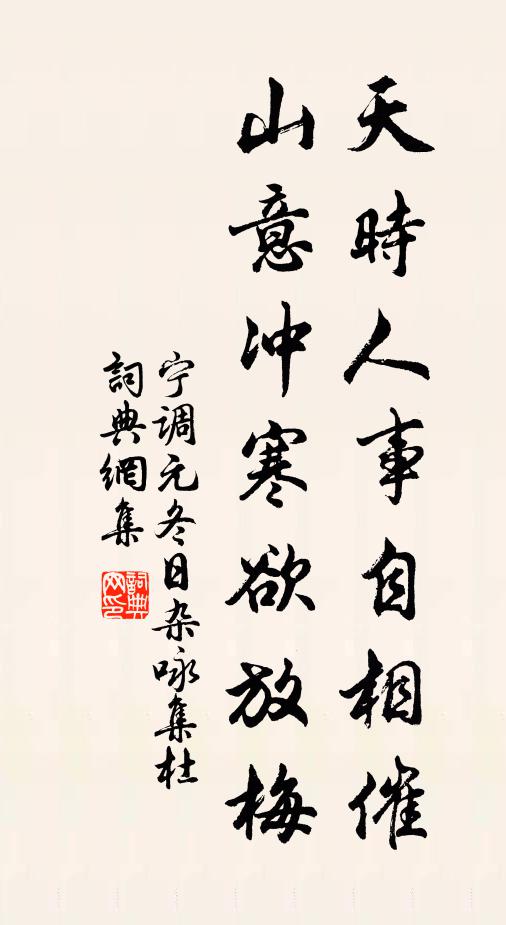 天時人事自相催
山意冲寒欲放梅
宁调元冬日杂咏集杜
詞典網集
詞典
网印